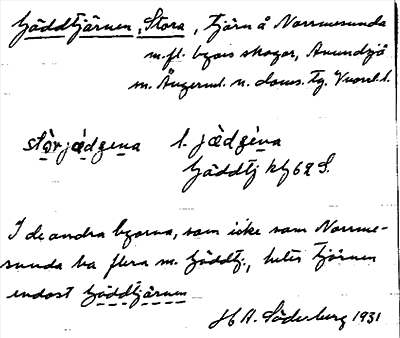 Gäddtjärnen, Stora, tjärn å Norrmesunda
m.fl. byars skogar, Anundsjö
m. Ångerml. n. doms. tg. Vnorrl. l.
stòrjǽdgena l. jædgèna
Gäddtj kbl 62 S.
I de andra byarna, som icke som Norrme-
sunda ha flera m. Gäddtj., heter tjärnen
endast Gäddtjärnen
H A. Söderberg 1931